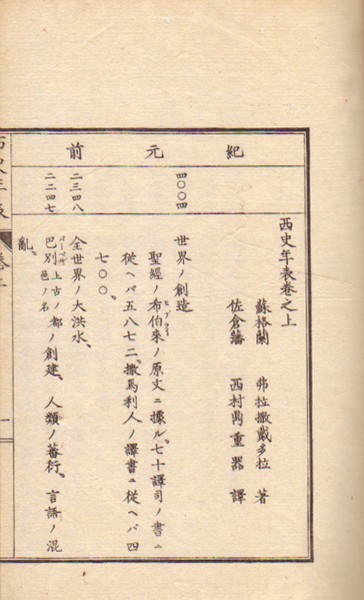 紀元前
西史年表巻之上
蘇格蘭 弗拉撒戴多拉 著
佐倉藩 西村鼎重器 譯
四〇〇四
世界ノ創造
聖經ノ希伯来ヘブライノ原文ニ據ル、七十譯司ノ書ニ
従ヘバ五八七二、撒馬利人ノ譯書ニ従ヘバ四
七〇〇、
二三四八
全世界ノ大洪水、
二二四七
巴別上古ノ都邑ノ名ノ創建、人類ノ蕃衍、言語ノ混
亂、
一